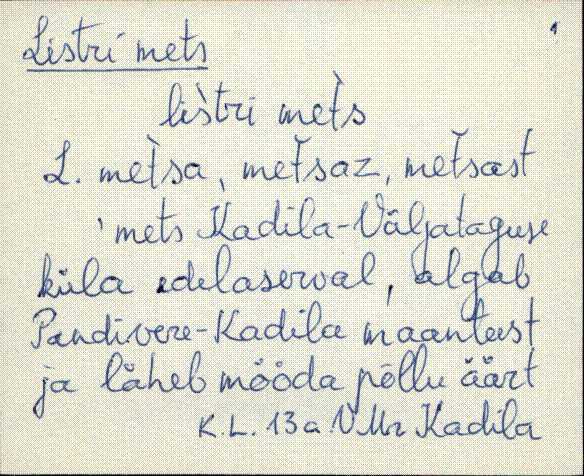 Listri mets
lìstri met̀s
L. met̀sa, met̆saz, met̆sast
'mets Kadila-Väljataguse
küla edelaserval, algab
Pandivere-Kadila maanteest
ja läheb mööda põllu äärt
K.L. 13 a. VMr Kadila